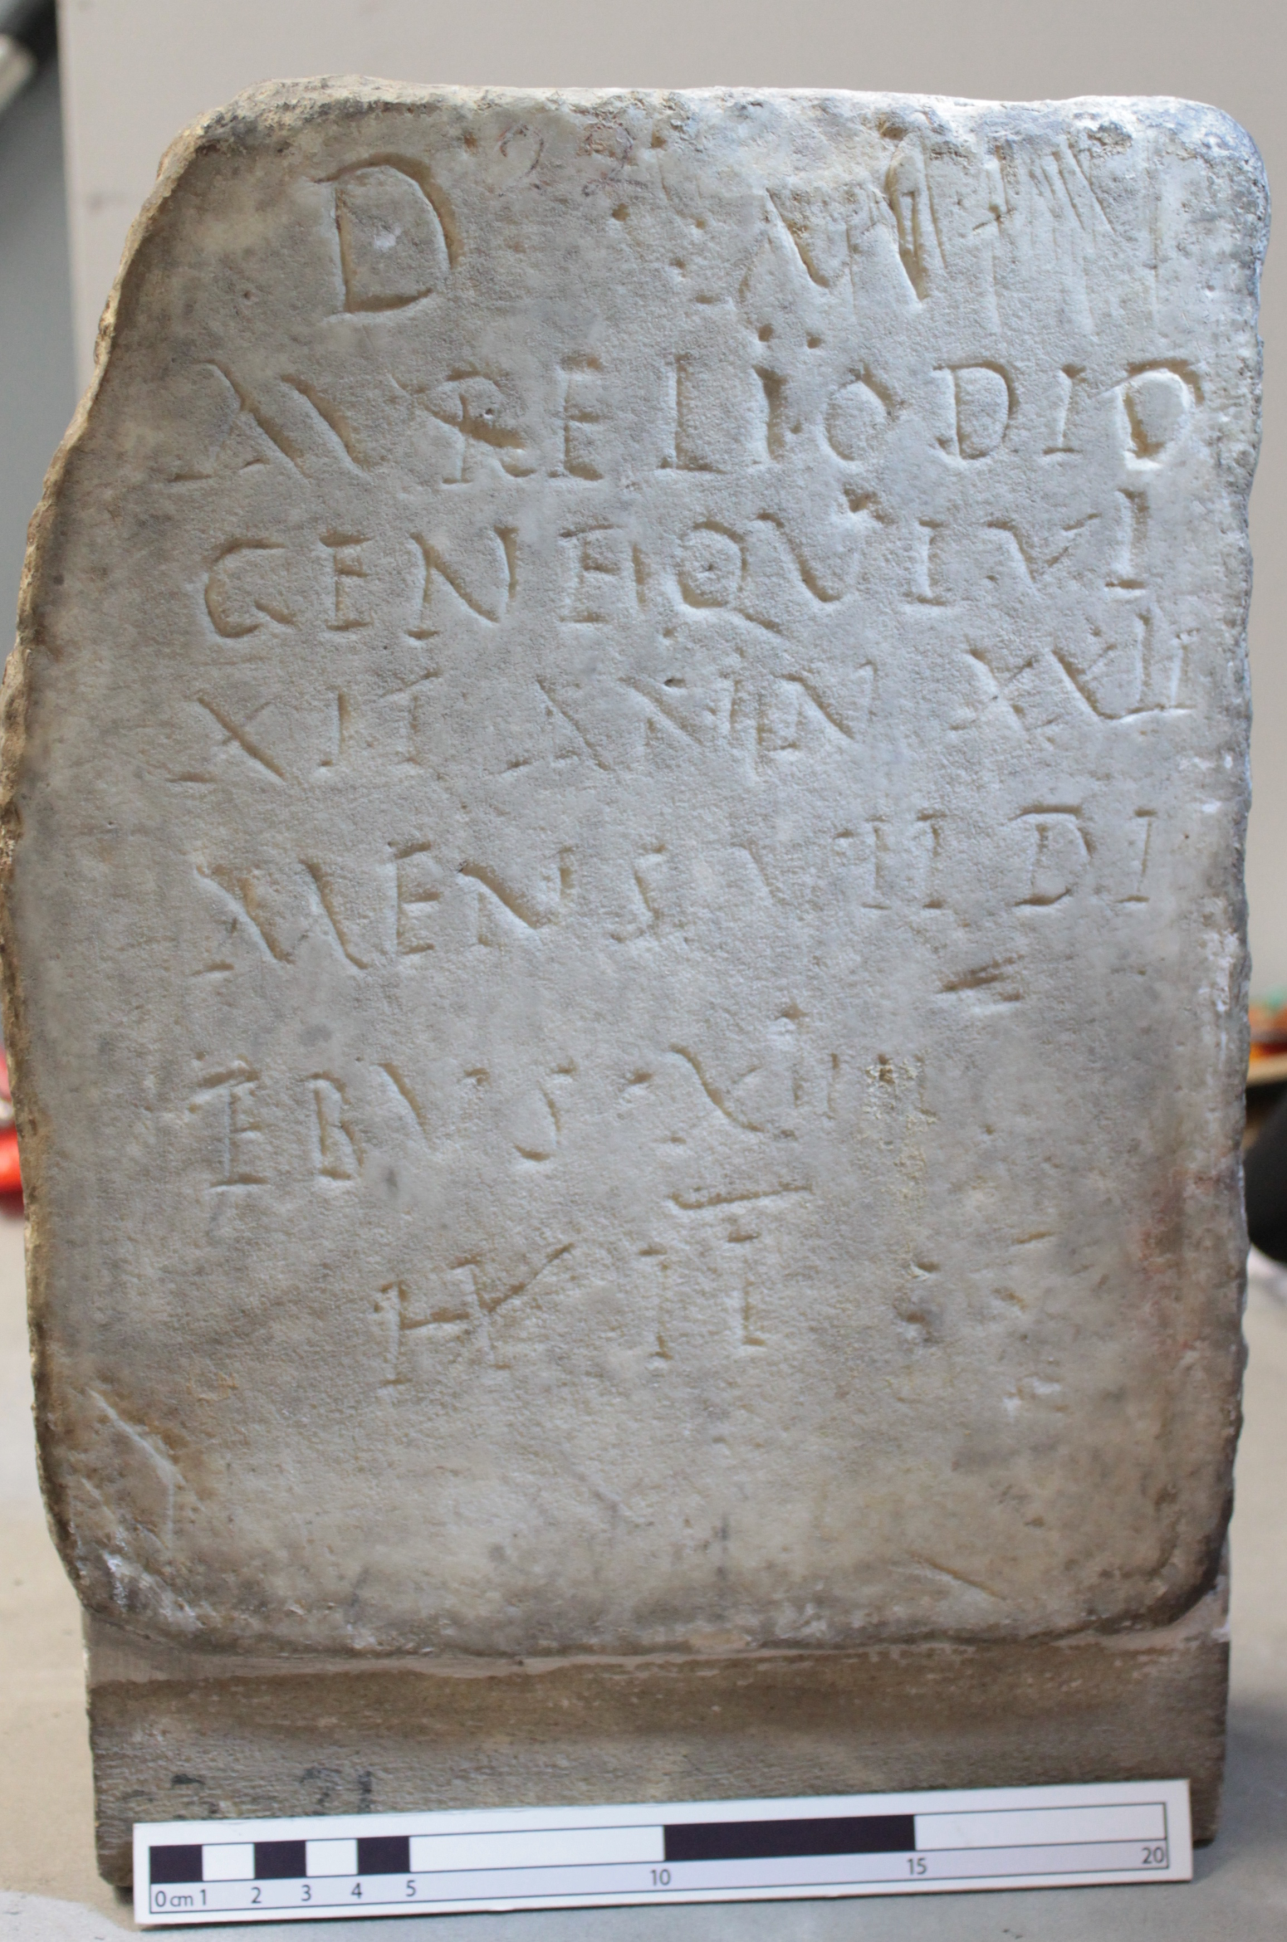 D M
AVRELIO DIO
GENE QVI VI
XIT ANN XXII
MENS VII DI
EBVS XIIII
H II S
0 cm 1 2 3 4 5 10 15 20